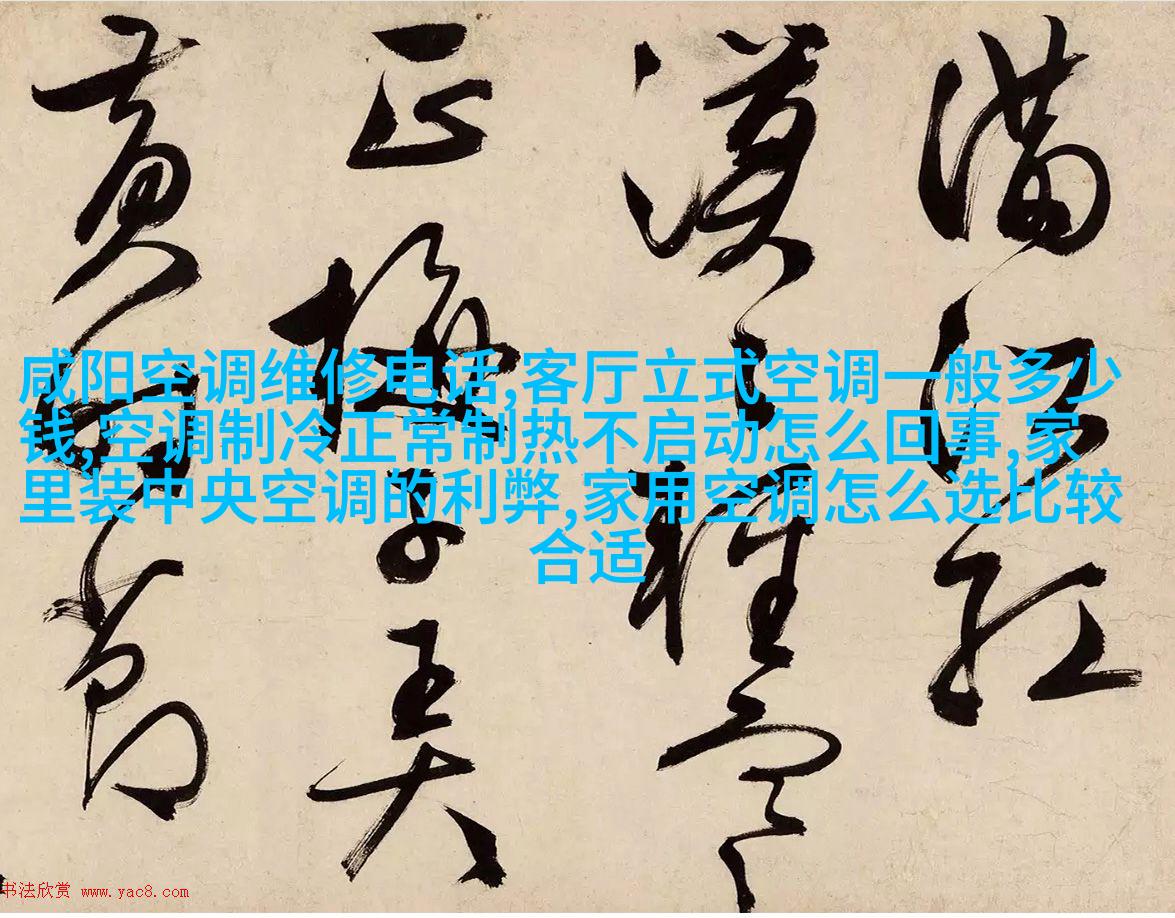 咸阳空调维修电话,客厅立式空调一般多少
钱,空调制冷正常制热不启动怎么回事,家
里装中央空调的利弊,家用空调怎么选比较
合适
满江红
漠〻輕
正梅子弄
黄时節
书法欣赏 www.yac8.com